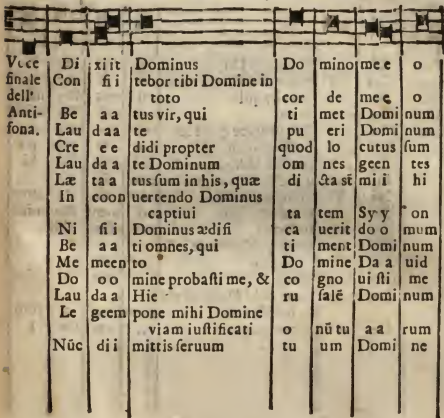 Voce Di xiit Dominus Do mino mee o
finale Con fi i tebor tibi Domine in
dell' toto cor de mee o
Anti- Be a a tus vir, qui ti met Domi num
fona. Lau daa te pu eri Domi num
Cre e e didi propter quod lo cutus ſum
Lau da a te Dominum om nes geen tes
Læ ta a tus ſum in his, quæ di cta st mi i hi
In coon uertendo Dominus
captiui ta tem Sy y on
Ni ſi i Dominus ædifi ca uerit do o mum
Be a a ti omnes, qui ti ment Domi num
Me meen to Do mine Da a uid
Do o o mine probaſti me, & co gno ui ſti me
Lau da a Hie ru ſalē Domi num
Le geem pone mihi Domine
viam iuſtificati o nū tu a a rum
Nūc di i mittis ſeruum tu um Domi ne